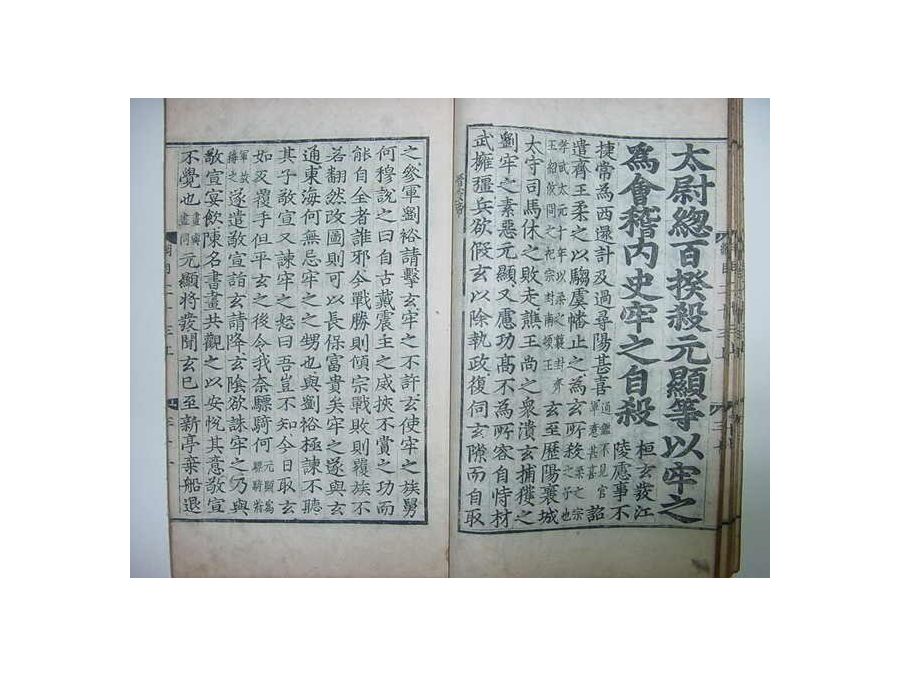 太尉總百揆殺元顯等以牢之
為會稽內史牢之自殺桓玄發江陵慮事不
捷常為西還計及過尋陽甚喜通鑑不見官軍意甚喜詔
遣齊王柔之以騶虞幡止之為玄所殺柔之宗之子也
孝武太元十年以柔之襲封齊王紹攸冏之祀宗封南頓王玄至歷陽襄城
太守司馬休之敗走譙王尚之衆潰玄捕獲之
劉牢之素惡元顯又慮功高不為所容自恃材
武擁彊兵欲假玄以除執政復伺玄隙而自取
之參軍劉裕請擊玄牢之不許玄使牢之族舅
何穆說之曰自古戴震主之威挾不賞之功而
能自全者誰邪今戰勝則傾宗戰敗則覆族不
若翻然改圖則可以長保富貴矣牢之遂與玄
通東海何無忌牢之之甥也與劉裕極諫不聽
其子敬宣又諫牢之怒曰吾豈不知今日取玄
如反覆手但平玄之後令我奈驃騎何元顯為驃騎將
軍故稱之遂遣敬宣詣玄請降玄陰欲誅牢之乃與
敬宣宴飲陳名書畫共觀之以安悅其意敬宣
不覺也元顯將發聞玄已至新亭棄船退